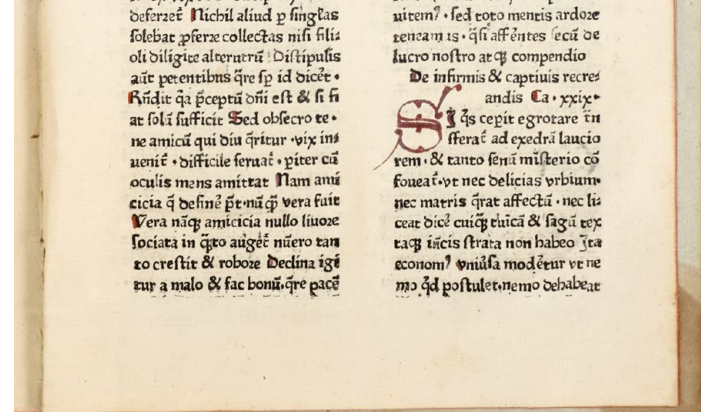 deferret̄ Nichil aliud ꝑ singl̄as
solebat ꝓferre collectas nisi fili⸗
oli diligite alterutrū Discipulis
aūt petentibus q̄re sꝑ id dicēt ·
Rn̄dit q̄a p̄ceptū dn̄i est & si fi
at solū sufficit Sed obsecro te ·
ne amicū qui diu q̄ritur · vix in⸗
uenit̄ · difficile seruat̄ · ꝑiter cū
oculis mens amittat Nam ami
cicia q̄ definē p̄t · nūꝙ̄ vera fuit
Vera nāꝙ amicicia nullo liuore
sociata in q̄ꝫto auget̄ nūero tan
to crescit & robore Declina igi
tur a malo & fac bonū · q̄re pacē
uitem̄ꝰ · sed toto mentis ardore
teneam̄ · q̄si afferentes secū de
lucro nostro atꝙ compendio
De infirmis & captiuis recre⸗
andis Ca · xxix ·
SI q̄s cepit egrotare t̄n
sferat̄ ad exedrā laucio
rem · & tanto senū misterio cō
foueat̄ · vt nec delicias vrbium ·
nec matris q̄rat affectū · nec li⸗
ceat dicē cuiꝙ tuicā & sagū tex
taꝙ in̄cis strata non habeo Ita
economꝰ vniūsa modētur vt ne
mo q̄d postulet · nemo dehabeat